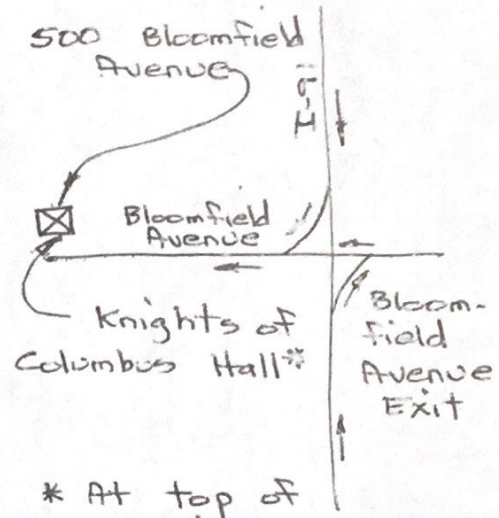 500 Bloomfield
Avenue
Bloomfield
Avenue
Knights of
Columbus Hall*
Bloom-
field
Avenue
Exit
* At top of